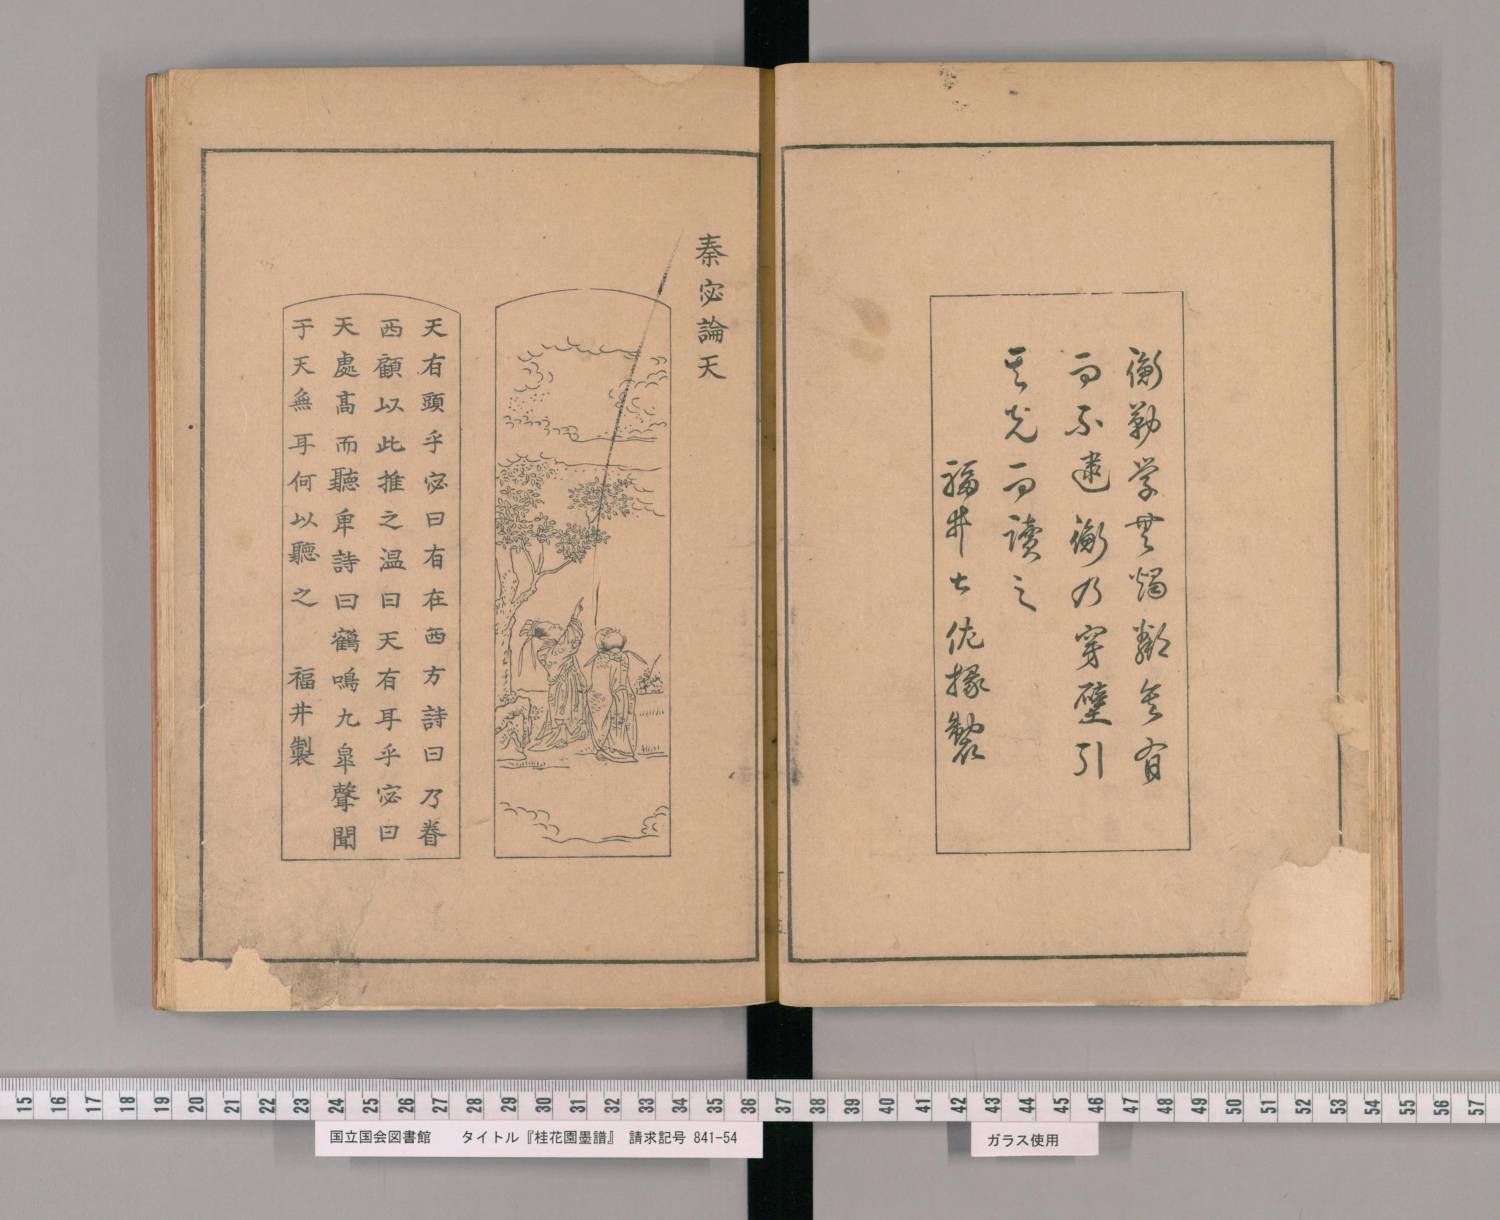 衡勤学無燭鄰舎有
而不逮衡乃穿壁引
其光而読之
福井土佐掾製
秦宓論天
天有頭乎宓曰有在西方詩曰乃眷
西顧以此推之温曰天有耳乎宓曰
天處髙而聽卑詩曰鶴鳴九皐聲聞
于天無耳何以聽之　福井製
15 16 17 18 19 20 21 22 23 24 25 26 27 28 29 30 31 32 33 34 35 36 37 38 39 40 41 42 43 44 45 46 47 48 49 50 51 52 53 54 55 56 57
国立国会図書館　タイトル『桂花園墨譜』　請求記号 841-54
ガラス使用